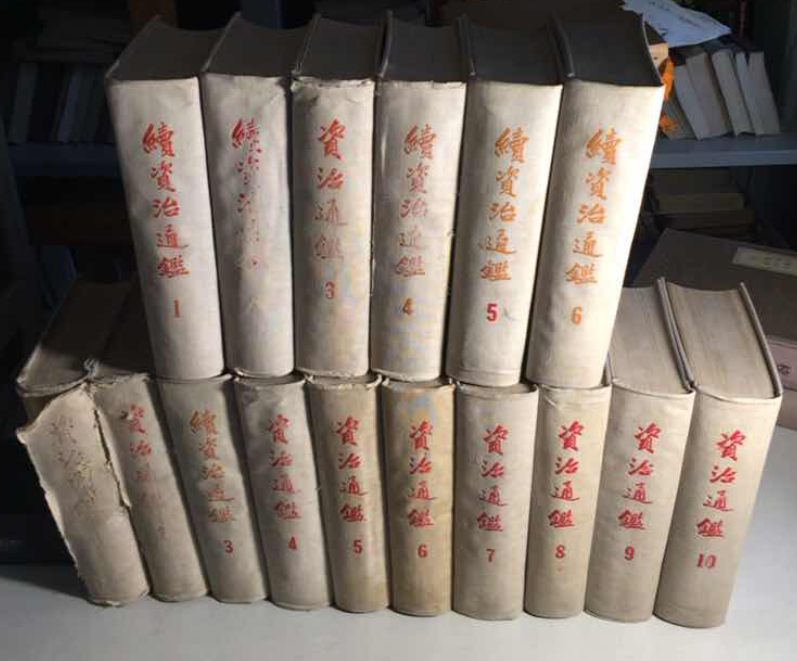 續資治通鑑
1
續資治通鑑
資治通鑑
3
續資治通鑑
4
續資治通鑑
5
續資治通鑑
6
資治通
資治通鑑
2
續資治通鑑
3
資治通鑑
4
資治通鑑
5
資治通鑑
6
資治通鑑
7
資治通鑑
8
資治通鑑
9
資治通鑑
10